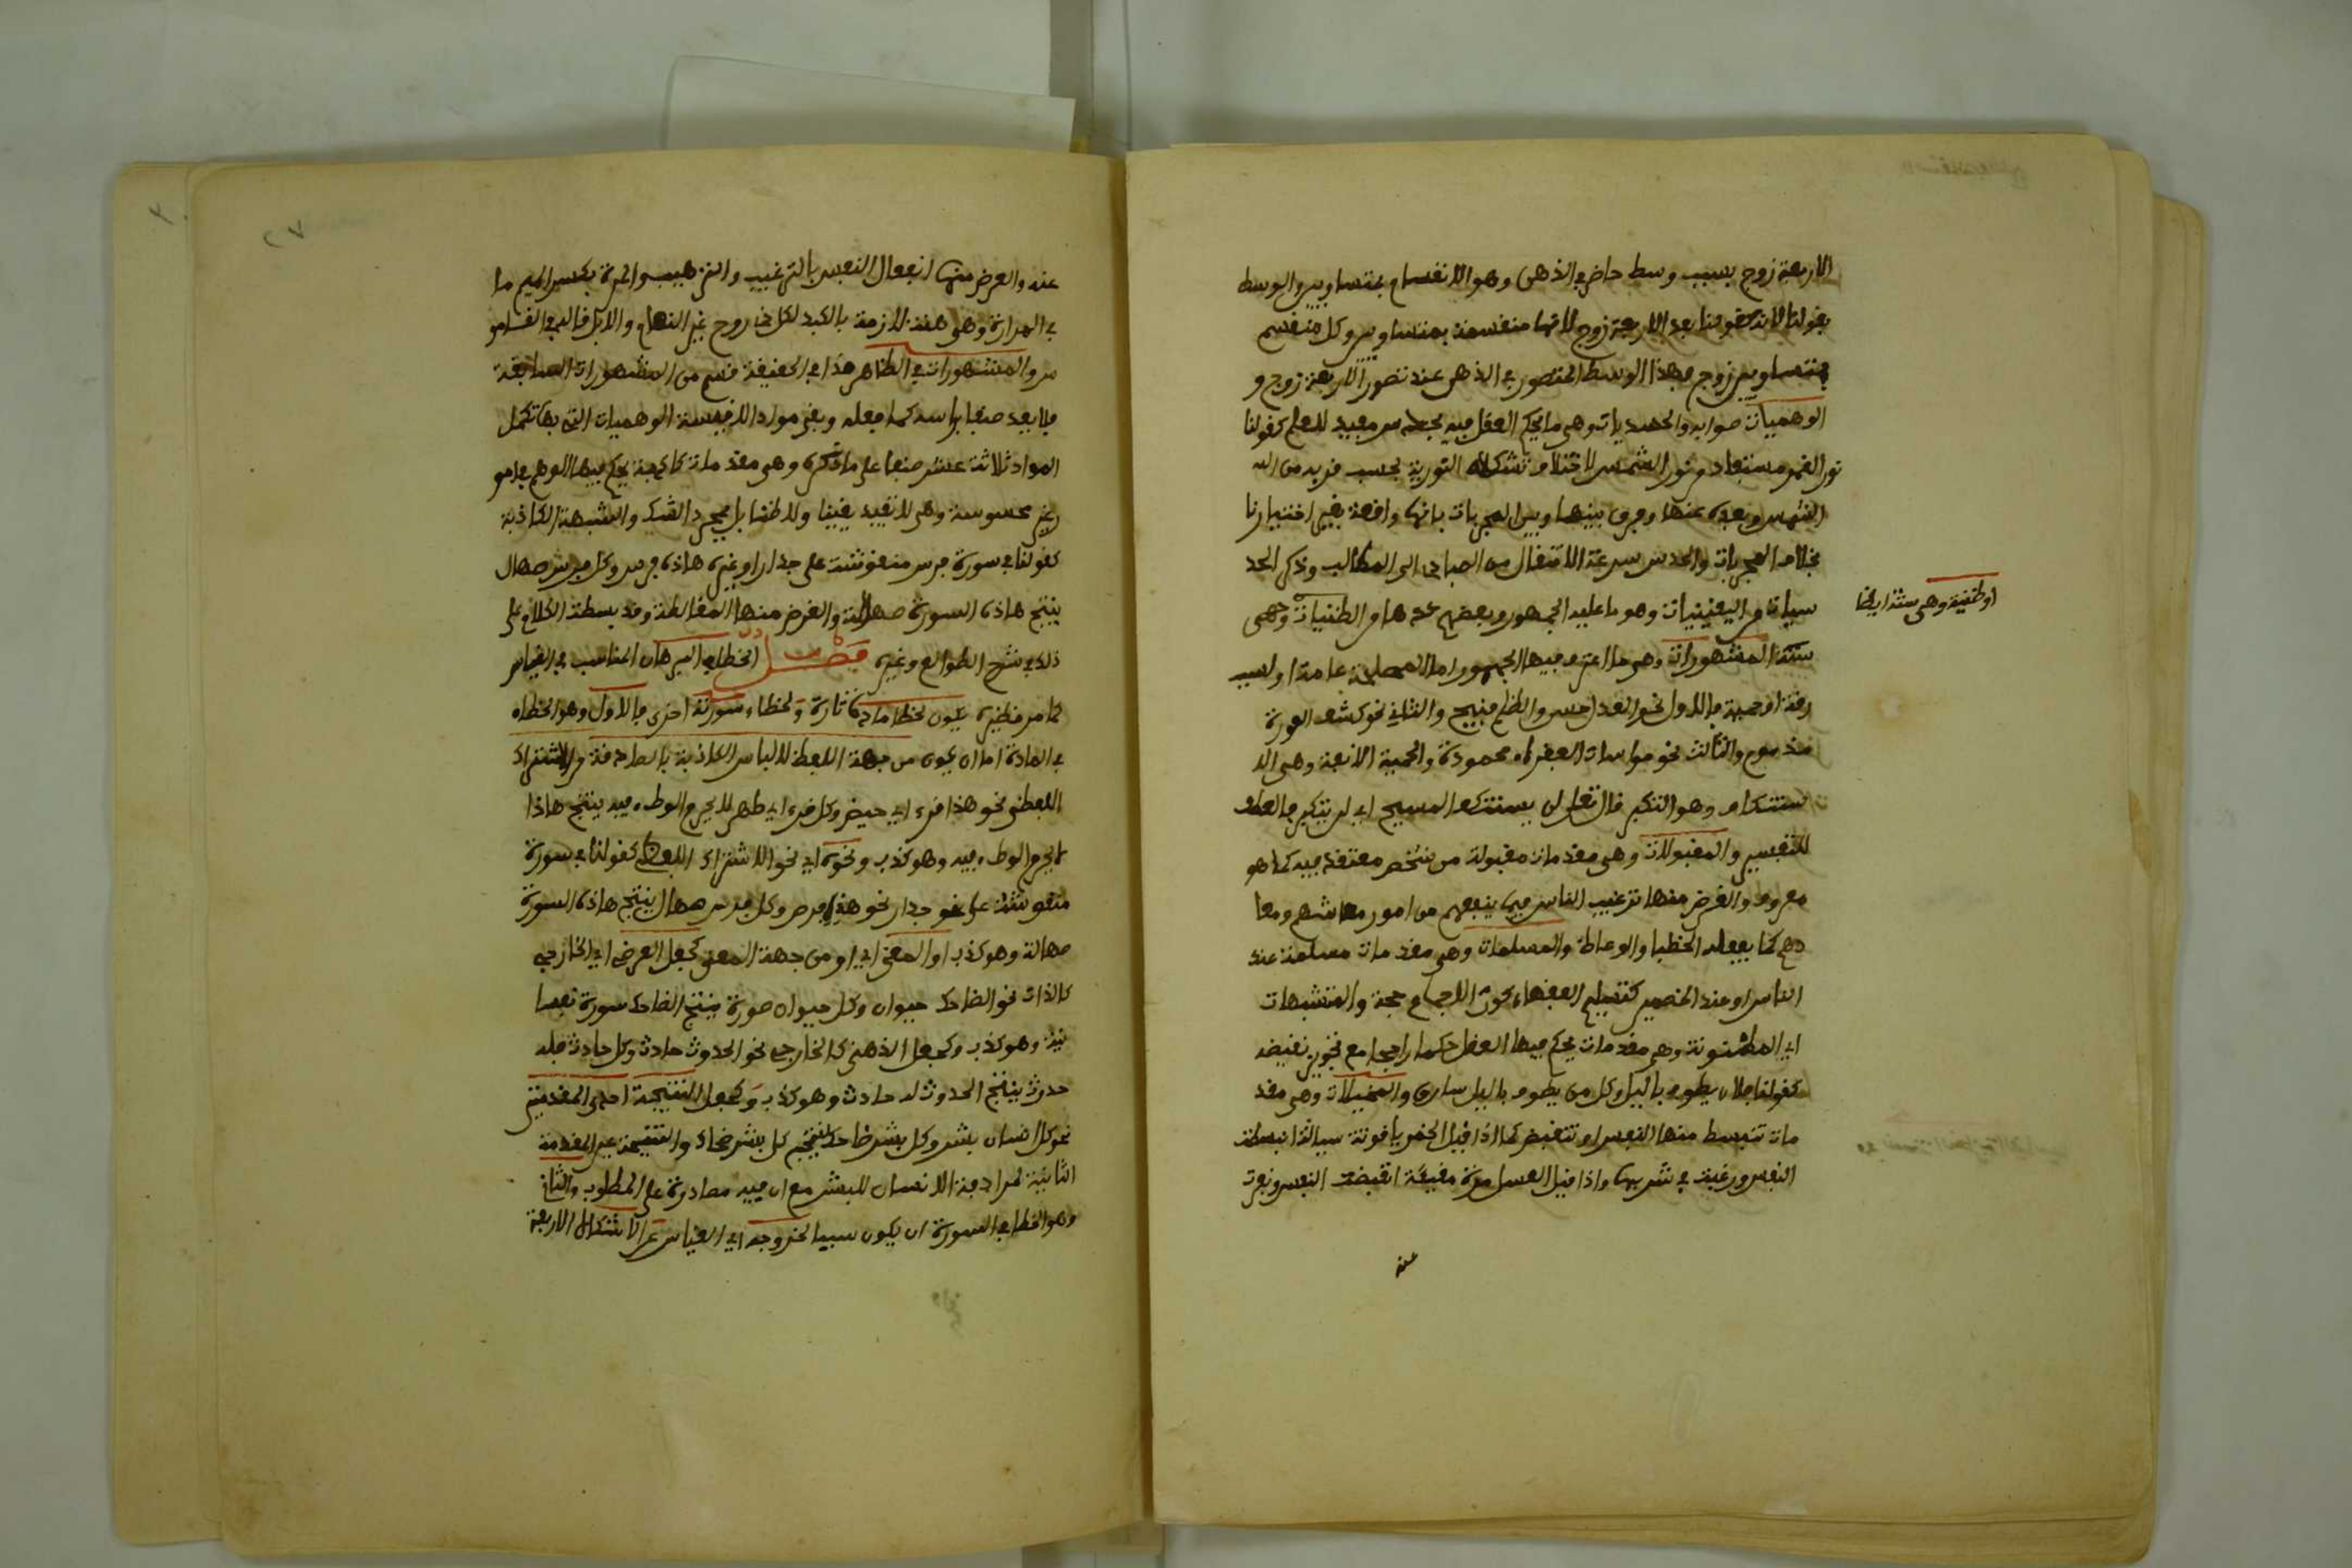 الاربعة زوج بسبب وسط حاضر في الذهن وهو الانقسام بمتساويين والوسط
بقولنا لانه كقولنا بعد الاربعة زوج لانها منقسمة بمتساويين وكل منقسم
بمتساويين زوج فهذا الوسط المتصور في الذهن عند تصور الاربعة زوج و
الوهميات صوابه والحدسيات وهي ما يحكم العقل فيه بحدس مفيد للعلم كقولنا
نور القمر مستفاد من نور الشمس لاختلاف تشكلاته النورية بحسب قربه من
الشمس وبعده عنها وفرق بينها وبين المجربات بانها واقعة بغير اختيارنا
بخلاف المجربات والحدس سرعة الانتقال من المبادي الى المطالب وذكر الحد
سيات في اليقينيات وهو ما عليه الجمهور وبعضهم عدها من الظنيات وهي
او ظنية وهي ستة ايضا
ستة المشهورات وهي ما اعترف فيها الجمهور اما لمصلحة عامة او لسبب
رقة او حمية فالاول نحو العدل حسن والظلم قبيح والثاني نحو كشف العورة
مذموم والثالث نحو مواسات الفقراء محمودة والحمية الانفة وهي الا
ستنكاف وهو التكبر قال تعلى لن يستنكف المسيح اي لن يتكبر فالعطف
للتفسير والمقبولات وهي مقدمات مقبولة من شخص معتقد فيه كما هو
معروف والغرض منها ترغيب الناس فيما ينفعهم من امور معاشهم ومعا
دهم كما يفعله الخطبا والوعاظ والمسلمات وهي مقدمات مسلمة عند
الناس او عند الخصمين كتسليم الفقهاء كون الاجماع حجة والمتشبهات
اي المظنونة وهي مقدمات يحكم فيها العقل حكما راجحا مع تجويز نقيضه
كقولنا فلان يطوف باليل وكل من يطوف باليل سارق والمخيلات وهي مقد
مات تنبسط منها النفس او تنقبض كما اذا قيل الخمر ياقوتة سيالة انبسطت
النفس ورغبت في شربها واذا قيل العسل مرة مقيئة انقبضت النفس ونفرت
عنه
٢٧
عنه والغرض منها انفعال النفس بالترغيب والترهيب والمرة بكسر الميم ما
في المرارة وهي هنة لازمة بالكبد لكل ذي روح غير النعام والابل قاله في القامو
س والمشهورات في الظاهر هذا في الحقيقة قسم من المشهورات السابقة
فلا يعد صنفا براسه كما فعله وبقي من مواد الاقيسة الوهميات التي بها تكمل
المواد ثلاثة عشر صنفا على ما ذكره وهي مقدمات كاذبة يحكم فيها الوهم في امو
ر غير محسوسة وهي لا تفيد يقينا ولا ظنا بل مجرد الشك والشبهة الكاذبة
كقولنا في سورة فرس منقوشة على جدار او غيره هاذه فرس وكل فرس صهال
ينتج هاذه السورة صهالة والغرض منها المغالطة وقد بسطت الكلام على
ذلك في شرح الطوالع وغيره فصل الخطا في البرهان المناسب في القياس
كما مر نظيره يكون لخطا مادة تارة ولخطاء سورة اخرى فالاول وهو الخطاء
في المادة اما ان يكون من جهة اللفظ لالباس الكاذبة بالصادقة في الاشتراك
اللفظي نحو هذا قرء اي حيض وكل قرء اي طهر لا يحرم الوطء فيه ينتج هاذا
لا يحرم الوطء فيه وهو كذب ونحوه اي نحو الاشتراك اللفظي كقولنا في سورة
منقوشة على نحو جدار نحو هذه فرس وكل فرس صهال ينتج هاذه السورة
صهالة وهو كذب او المعنى اي او من جهة المعنى كجعل العرضي اي الخارجي
كالذات نحو الضاحك حيوان وكل حيوان صورة ينتج الضاحك سورة نفسا
نية وهو كذب وكجعل الذهني كالخارجي نحو الحدوث حادث وكل حادث فله
حدوث ينتج الحدوث له حادث وهو كذب وكجعل النتيجة احدى المقدمتين
نحو كل انسان بشر وكل بشر ضاحك ينتج كل بشر ضحاك والنتيجة عين المقدمة
الثانية لمرادفة الانسان للبشر مع ان فيه مصادرة على المطلوب والثان
وهو الخطا في السورة ان يكون سببا لخروجه اي القياس عن الاشكال الاربعة